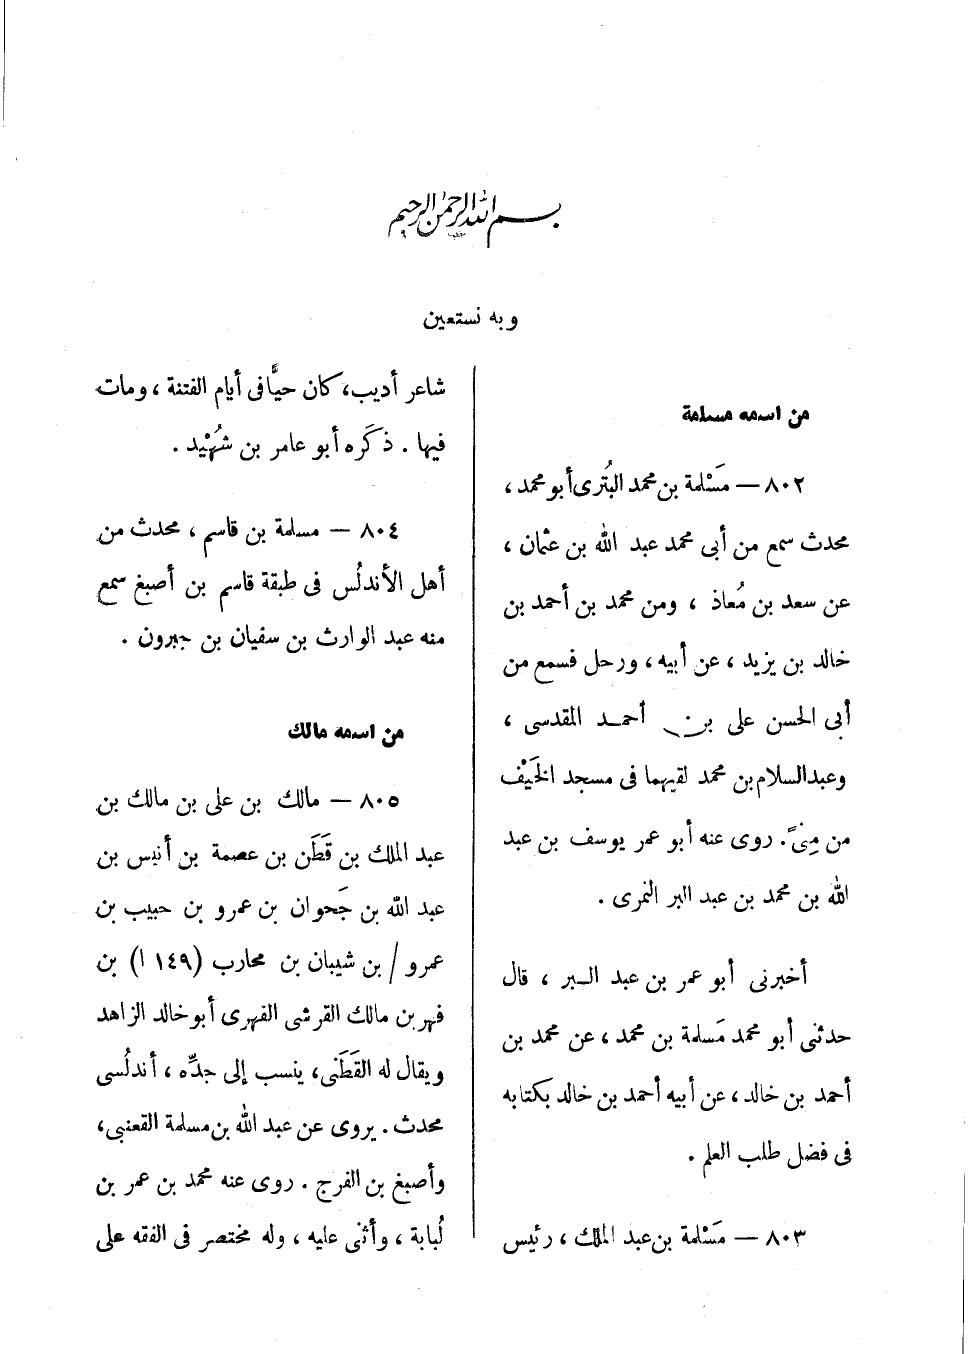 بسم الله الرحمن الرحيم
وبه نستعين
من اسمه مسلمة
٨٠٢ — مَسْلمة بن محمد البُترى أبو محمد ،
محدث سمع من أبى محمد عبد الله بن عثمان ،
عن سعد بن مُعاذ ، ومن محمد بن أحمد بن
خالد بن يزيد ، عن أبيه ، ورحل فسمع من
أبى الحسن على بن أحمد المقدسى ،
وعبد السلام بن محمد لقيهما فى مسجد الخَيْف
من مِنىً . روى عنه أبو عمر يوسف بن عبد
الله بن محمد بن عبد البر النمرى .
أخبرنى أبو عمر بن عبد البر ، قال
حدثنى أبو محمد مَسلمة بن محمد ، عن محمد بن
أحمد بن خالد ، عن أبيه أحمد بن خالد بكتابه
فى فضل طلب العلم .
٨٠٣ — مَسْلمة بن عبد الملك ، رئيس
شاعر أديب ، كان حيًّا فى أيام الفتنة ، ومات
فيها . ذكَره أبو عامر بن شُهَيْد .
٨٠٤ — مسلمة بن قاسم ، محدث من
أهل الأندلُس فى طبقة قاسم بن أصبغ سمع
منه عبد الوارث بن سفيان بن جبرون .
من اسمه مالك
٨٠٥ — مالك بن على بن مالك بن
عبد الملك بن قَطَن بن عصمة بن أنيس بن
عبد الله بن جَحوان بن عمرو بن حبيب بن
عمرو / بن شيبان بن محارب (١٤٩ ا) بن
فهر بن مالك القرشى الفهرى أبو خالد الزاهد
ويقال له القَطَنى ، ينسب إلى جدِّه ، أندلُسى
محدث . يروى عن عبد الله بن مسلمة القعنبى ،
وأصبغ بن الفرج . روى عنه محمد بن عمر بن
لُبابة ، وأثنى عليه ، وله مختصر فى الفقه على